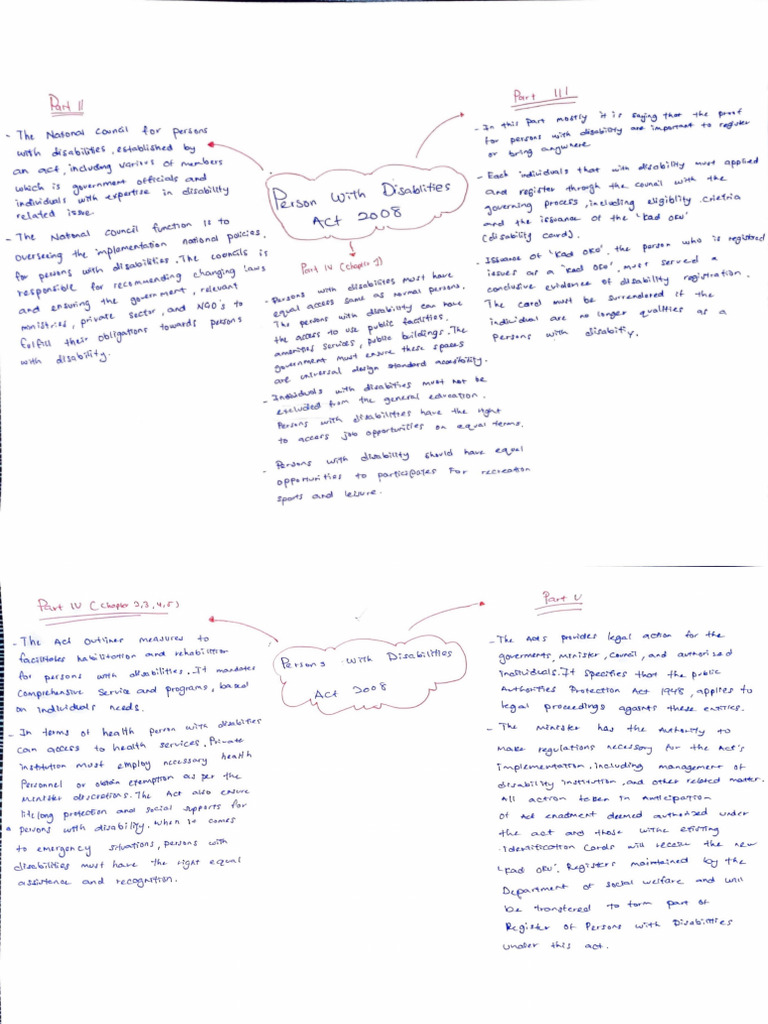 Part II
- The National Council for persons
with disabilities, established by
an act, including various of members
which is government officials and
individuals with expertise in disability
related issue.
- The National Council function is to
overseeing the implementation national policies.
for persons with disabilities. The councils is
responsible for recommending changing laws
and ensuring the government, relevant
ministries, private sector, and NGO's to
fulfill their obligations towards persons
with disability.
Person With Disabilities
Act 2008
Part IV (Chapter 1)
- Persons with disabilities must have
equal access same as normal persons.
The persons with disability can have
the access to use public facilities.
amenities services, public buildings. The
government must ensure these spaces
are universal design standard accesibility.
- Individuals with disabilities must not be
excluded from the general education.
Persons with disabilities have the right
to access job opportunities on equal terms.
- Persons with disability should have equal
opportunities to participates for recreation
sports and leisure.
Part III
- In this part mostly it is saying that the proof
for persons with disability are important to register
or bring anywhere
- Each individuals that with disability must applied
and register through the council with the
governing process, including eligiblity criteria
and the issuance of the 'Kad OKU'
(disability card).
- Issuance of 'Kad OKU'. the person who is registered
issues as a 'Kad OKU', must served a
conclusive evidence of disability registration.
The card must be surrendered if the
individual are no longer qualities as a
Persons with disability.
Part IV (Chapter 2,3,4,5)
- The Act outlines measures to
facilitates habilitation and rehabilition
for persons with disabilities. It mandates
Comprehensive Service and programs, based
on individuals needs.
- In terms of health person with disabilities
can access to health services. Private
institution must employ necessary health
Personnel or obtain exemption as per the
Minister discretions. The Act also ensure
lifelong protection and social supports for
persons with disability. When it comes
to emergency situations, persons with
disabilities must have the right equal
assistance and recognition.
Persons with Disabilities
Act 2008
Part V
- The Acts provides legal action for the
goverments, Minister, Council, and authorised
individuals. It specifies that the public
Authorities Protection Act 1948, applies to
legal proceedings againts these entities.
- The Minister has the Authority to
make regulations necessary for the Act's
implementation, including management of
disability institution, and other related matter.
All action taken in Anticipation
of Act enadment deemed authorized under
the act and those withe existing
Identification Cards will receive the new
'Kad OKU'. Registers maintained by the
Department of social welfare and will
be transfered to form part of
Register of Persons with Disabilities
under this act.